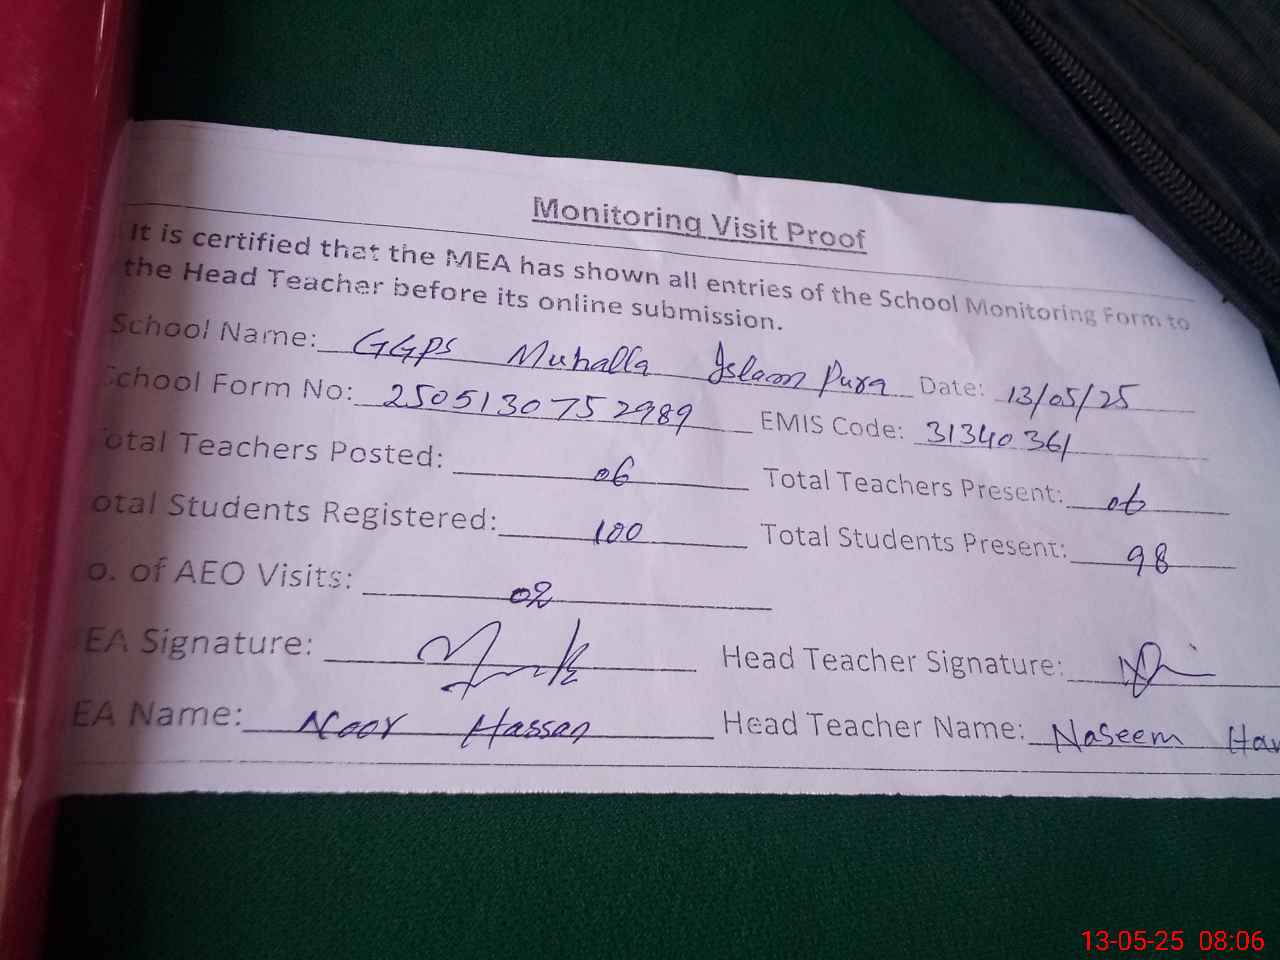 Monitoring Visit Proof
It is certified that the MEA has shown all entries of the School Monitoring Form to
the Head Teacher before its online submission.
School Name: GGPS Muhalla Islam Pura Date: 13/05/25
School Form No: 2505130752989 EMIS Code: 31340361
otal Teachers Posted: 06 Total Teachers Present: 06
otal Students Registered: 100 Total Students Present: 98
o. of AEO Visits: 02
EA Signature: Head Teacher Signature:
EA Name: Noor Hassan Head Teacher Name: Naseem
13-05-25 08:06